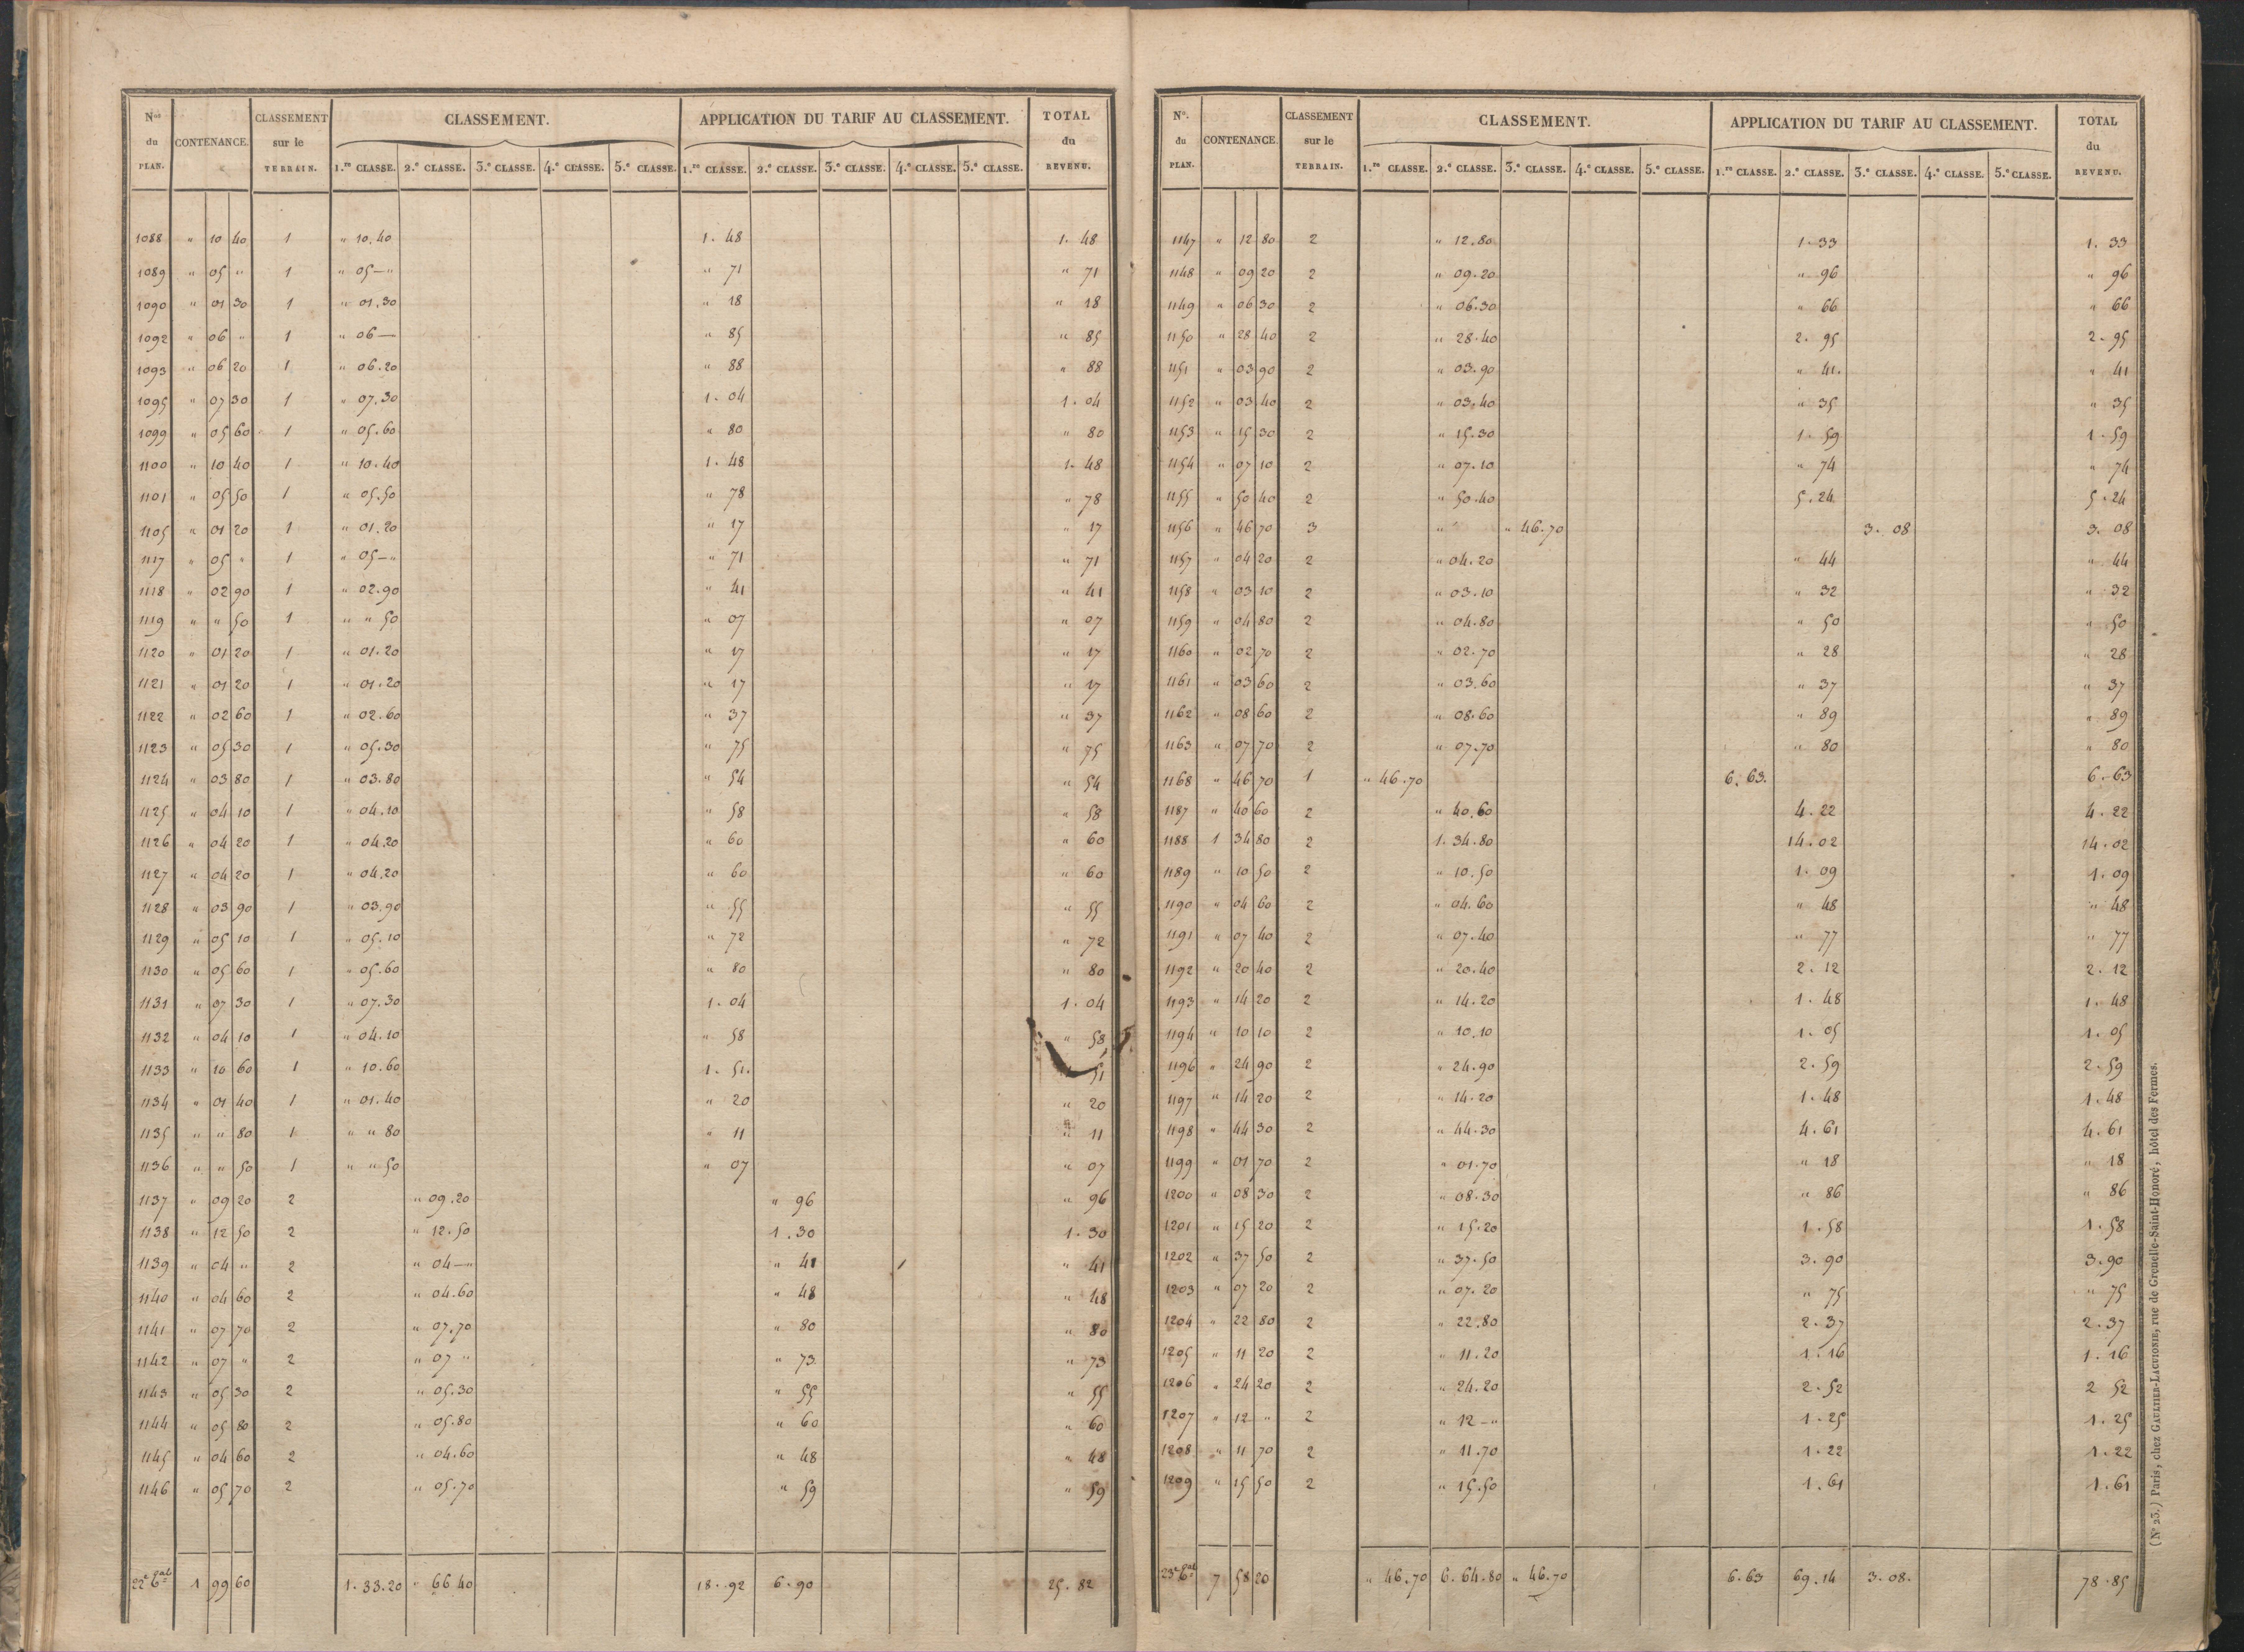 Nos du PLAN. CONTENANCE. CLASSEMENT sur le TERRAIN. CLASSEMENT. APPLICATION DU TARIF AU CLASSEMENT. TOTAL du REVENU.
1.re CLASSE. 2.e CLASSE. 3.e CLASSE. 4.e CLASSE. 5.e CLASSE. 1.re CLASSE. 2.e CLASSE. 3.e CLASSE. 4.e CLASSE. 5.e CLASSE.
1088 " 10 40 1 " 10.40 1. 48 1. 48
1089 " 05 " 1 " 05—" " 71 " 71
1090 " 01 30 1 " 01.30 " 18 " 18
1092 " 06 " 1 " 06— " 85 " 85
1093 " 06 20 1 " 06.20 " 88 " 88
1095 " 07 30 1 " 07.30 1. 04 1. 04
1099 " 05 60 1 " 05.60 " 80 " 80
1100 " 10 40 1 " 10.40 1. 48 1. 48
1101 " 05 50 1 " 05.50 " 78 " 78
1105 " 01 20 1 " 01.20 " 17 " 17
1117 " 05 " 1 " 05—" " 71 " 71
1118 " 02 90 1 " 02.90 " 41 " 41
1119 " " 50 1 " " 50 " 07 " 07
1120 " 01 20 1 " 01.20 " 17 " 17
1121 " 01 20 1 " 01.20 " 17 " 17
1122 " 02 60 1 " 02.60 " 37 " 37
1123 " 05 30 1 " 05.30 " 75 " 75
1124 " 03 80 1 " 03.80 " 54 " 54
1125 " 04 10 1 " 04.10 " 58 " 58
1126 " 04 20 1 " 04.20 " 60 " 60
1127 " 04 20 1 " 04.20 " 60 " 60
1128 " 03 90 1 " 03.90 " 55 " 55
1129 " 05 10 1 " 05.10 " 72 " 72
1130 " 05 60 1 " 05.60 " 80 " 80
1131 " 07 30 1 " 07.30 1. 04 1. 04
1132 " 04 10 1 " 04.10 " 58 " 58
1133 " 10 60 1 " 10.60 1. 51. 51
1134 " 01 40 1 " 01.40 " 20 " 20
1135 " " 80 1 " " 80 " 11 " 11
1136 " " 50 1 " " 50 " 07 " 07
1137 " 09 20 2 " 09.20 " 96 " 96
1138 " 12 50 2 " 12.50 1.30 1.30
1139 " 04 " 2 " 04—" " 41 " 41
1140 " 04 60 2 " 04.60 " 48 " 48
1141 " 07 70 2 " 07.70 " 80 " 80
1142 " 07 " 2 " 07 " " 73 " 73
1143 " 05 30 2 " 05.30 " 55 " 55
1144 " 05 80 2 " 05.80 " 60 " 60
1145 " 04 60 2 " 04.60 " 48 " 48
1146 " 05 70 2 " 05.70 " 59 " 59
22e 1 99 60 1.33.20 " 66 40 18.92 6.90 25.82
No. du PLAN. CONTENANCE. CLASSEMENT sur le TERRAIN. CLASSEMENT. APPLICATION DU TARIF AU CLASSEMENT. TOTAL du REVENU.
1.re CLASSE. 2.e CLASSE. 3.e CLASSE. 4.e CLASSE. 5.e CLASSE. 1.re CLASSE. 2.e CLASSE. 3.e CLASSE. 4.e CLASSE. 5.e CLASSE.
1147 " 12 80 2 " 12.80 1.33 1.33
1148 " 09 20 2 " 09.20 " 96 " 96
1149 " 06 30 2 " 06.30 " 66 " 66
1150 " 28 40 2 " 28.40 2. 95 2. 95
1151 " 03 90 2 " 03.90 " 41. " 41
1152 " 03 40 2 " 03.40 " 35 " 35
1153 " 15 30 2 " 15.30 1. 59 1.59
1154 " 07 10 2 " 07.10 " 74 " 74
1155 " 50 40 2 " 50.40 5.24 5.24
1156 " 46 70 3 " " 46.70 3. 08 3. 08
1157 " 04 20 2 " 04.20 " 44 " 44
1158 " 03 10 2 " 03.10 " 32 " 32
1159 " 04 80 2 " 04.80 " 50 " 50
1160 " 02 70 2 " 02.70 " 28 " 28
1161 " 03 60 2 " 03.60 " 37 " 37
1162 " 08 60 2 " 08.60 " 89 " 89
1163 " 07 70 2 " 07.70 " 80 " 80
1168 " 46 70 1 " 46.70 6.63. 6.63
1187 " 40 60 2 " 40.60 4.22 4.22
1188 1 34 80 2 1.34.80 14.02 14.02
1189 " 10 50 2 " 10.50 1.09 1.09
1190 " 04 60 2 " 04.60 " 48 " 48
1191 " 07 40 2 " 07.40 " 77 " 77
1192 " 20 40 2 " 20.40 2.12 2.12
1193 " 14 20 2 " 14.20 1.48 1.48
1194 " 10 10 2 " 10.10 1.05 1.05
1196 " 24 90 2 " 24.90 2.59 2.59
1197 " 14 20 2 " 14.20 1.48 1.48
1198 " 44 30 2 " 44.30 4.61 4.61
1199 " 01 70 2 " 01.70 " 18 " 18
1200 " 08 30 2 " 08.30 " 86 " 86
1201 " 15 20 2 " 15.20 1.58 1.58
1202 " 37 50 2 " 37.50 3.90 3.90
1203 " 07 20 2 " 07.20 " 75 " 75
1204 " 22 80 2 " 22.80 2.37 2.37
1205 " 11 20 2 " 11.20 1.16 1.16
1206 " 24 20 2 " 24.20 2.52 2 52
1207 " 12 " 2 " 12—" 1.25 1.25
1208 " 11 70 2 " 11.70 1.22 1.22
1209 " 15 50 2 " 15.50 1.61 1.61
23e 7 58 20 " 46.70 6.64.80 " 46.70 6.63 69.14 3.08. 78.85
(No 23.) Paris, chez GAULTIER-LAGUIONIE, rue de Grenelle-Saint-Honoré, hôtel des Fermes.